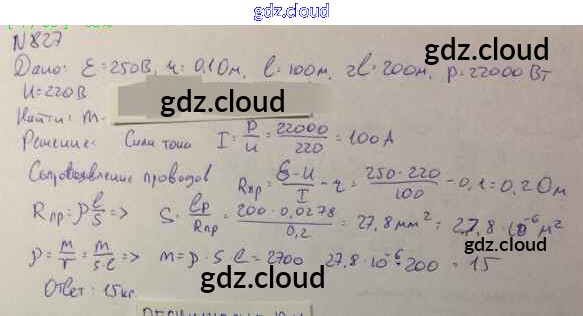 gdz.cloud
N 827
gdz.cloud
Дано: Ɛ=250В, r=0,1Ом, l=100м, 2l=200м, P=22000Вт
U=220В
gdz.cloud
Найти: m-
Решение: Сила тока I = P/U = 22000/220 = 100А
gdz.cloud
Сопротивление проводов Rпр = Ɛ-U/I - r = 250-220/100 - 0,1 = 0,2Ом
Rпр = ρ l/S => S = lρ/Rпр = 200·0,0278/0,2 = 27,8мм² = 27,8·10⁻⁶м²
gdz.cloud
ρ = m/V = m/S·l => m = ρ·S·l = 2700 27,8·10⁻⁶·200 = 15
gdz.cloud
Ответ: 15кг.